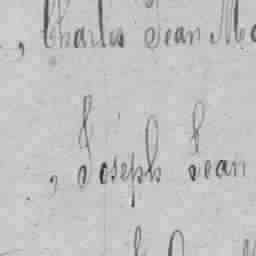 , Charles Jean Ma
, Joseph Jean